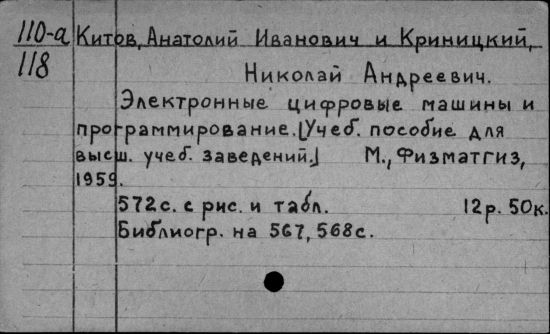 110-а Китов, Анатолий Иванович и Криницкий,
118 Николай Андреевич.
Электронные цифровые машины и
программирование. [Учеб. пособие для
высш. учеб. заведений.] М., Физматгиз,
1959.
572с. с рис. и табл. 12р. 50к.
Библиогр. на 567, 568с.